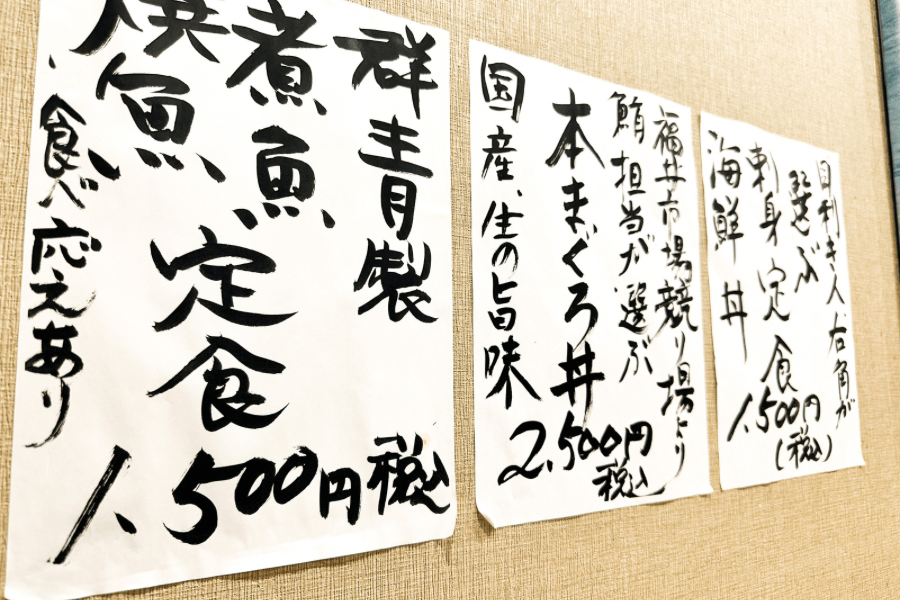 目利き人 右角が
選ぶ
刺身定食
海鮮丼
1,500円
(税込)
福井市場競り場より
鮪担当が選ぶ
本まぐろ丼
国産、生の旨味
2,500円
税込
群青製
煮魚、
焼魚、
定食
食べ応えあり
1,500円税込